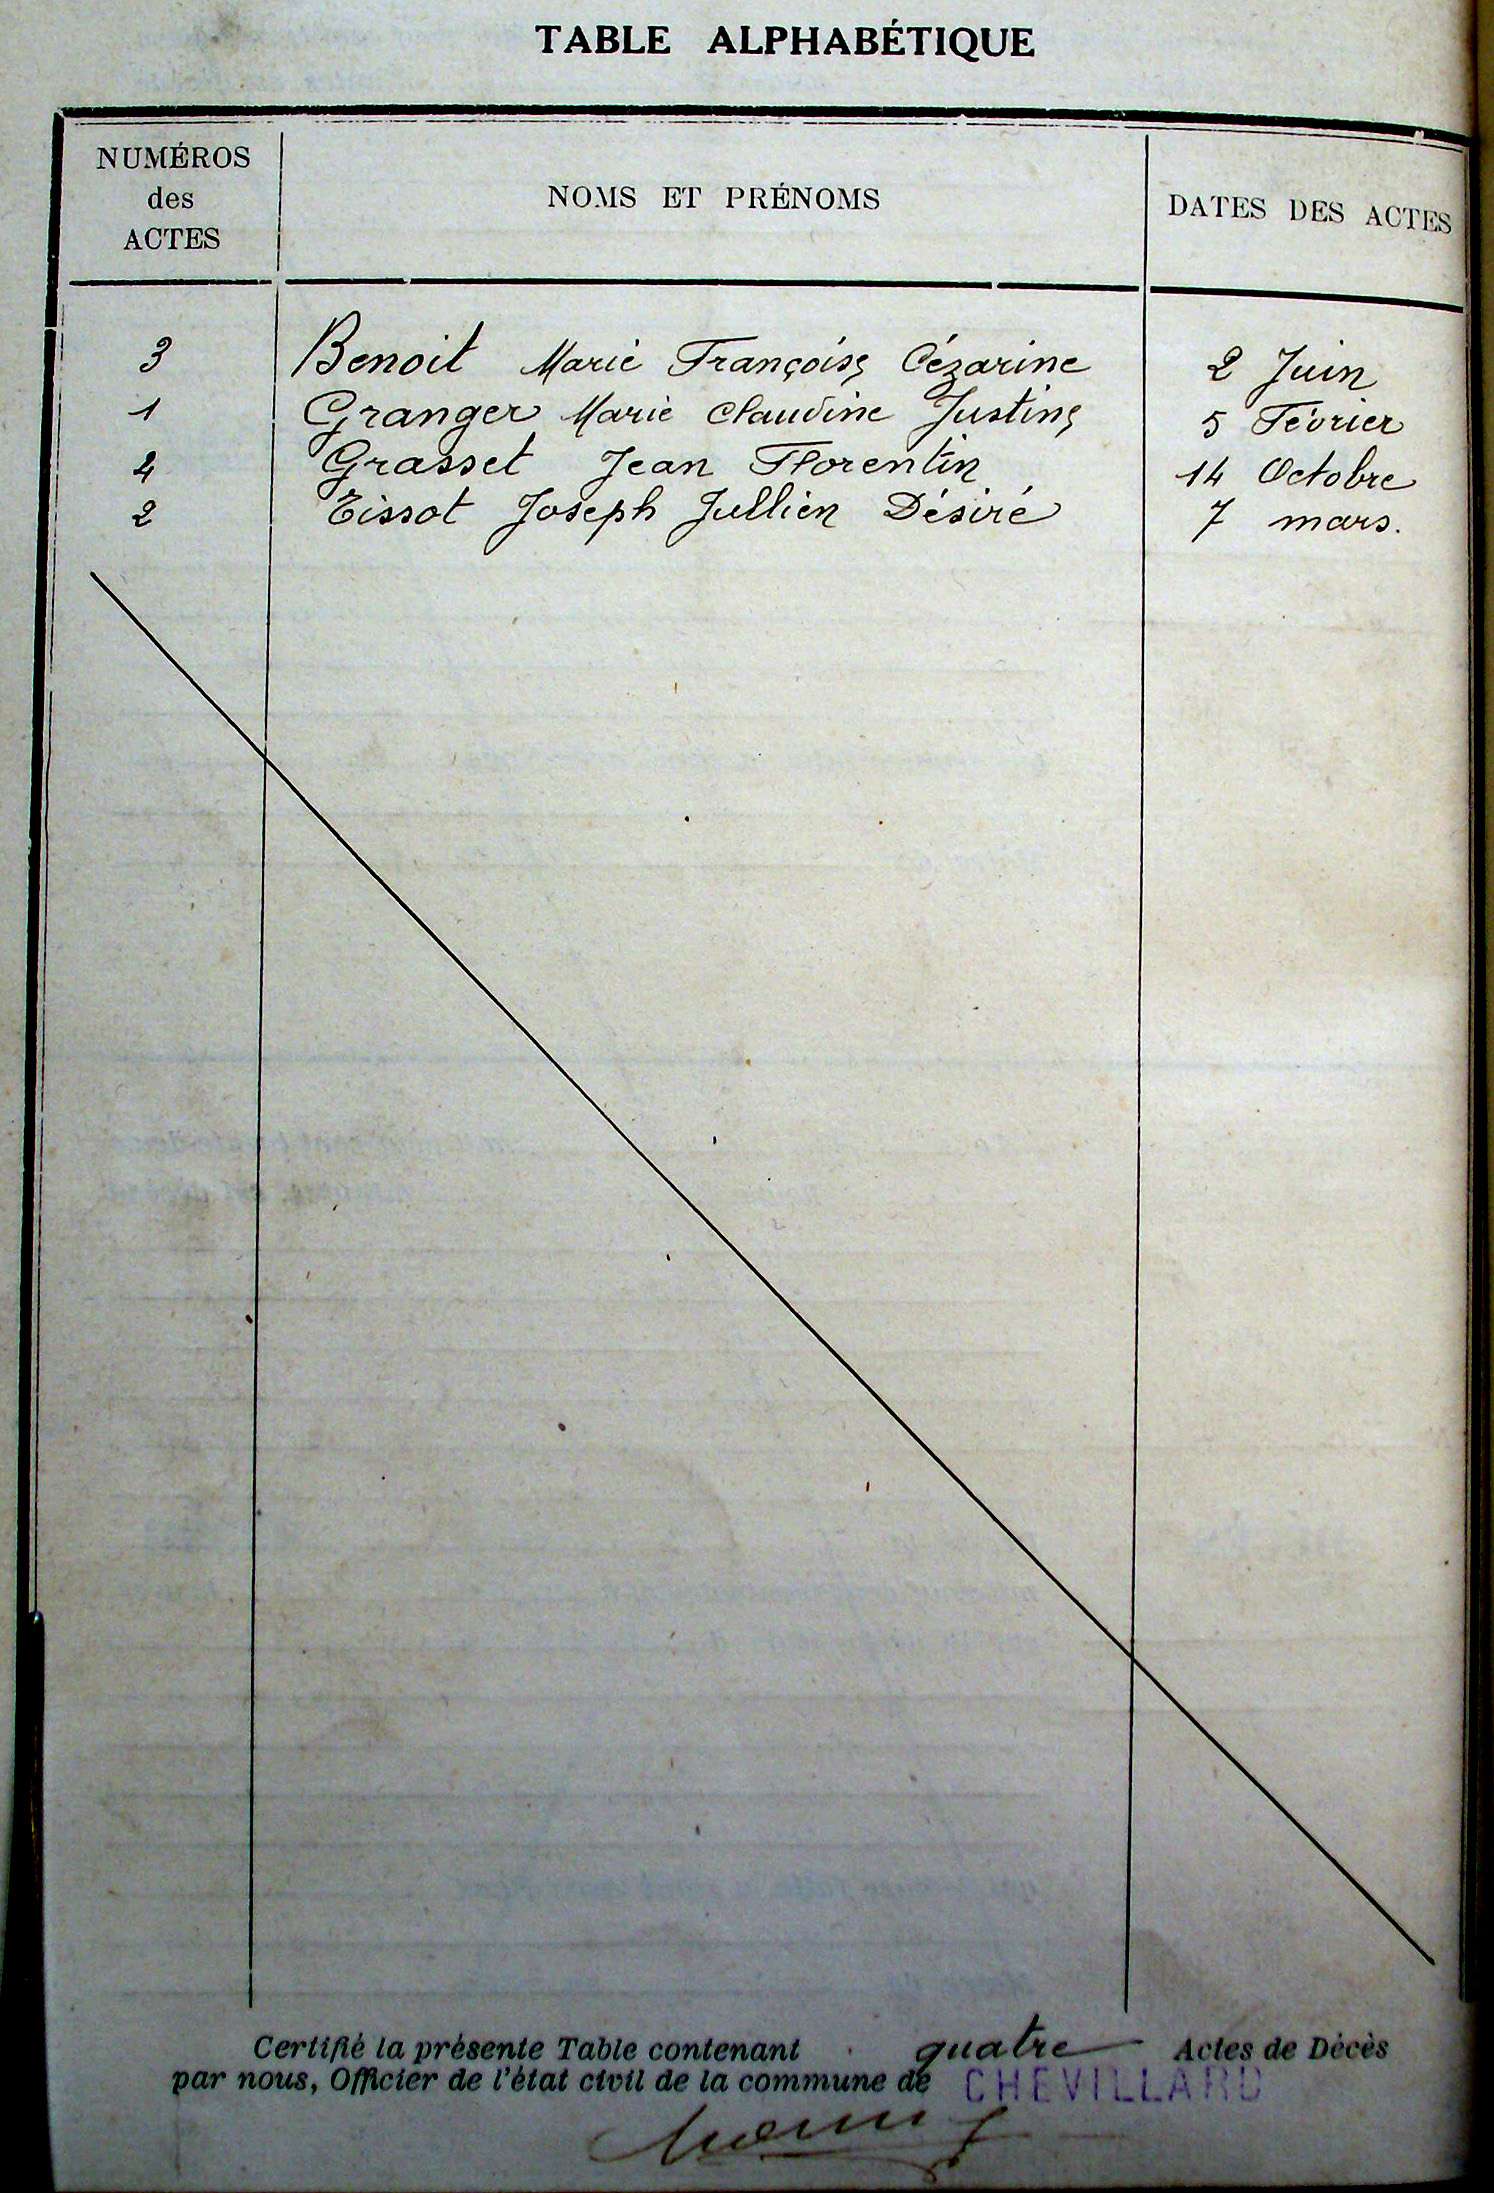 TABLE ALPHABÉTIQUE
NUMÉROS
des
ACTES
NOMS ET PRÉNOMS
DATES DES ACTES
3 Benoit Marie Françoise Cézarine 2 Juin
1 Granger Marie Claudine Justine 5 Février
4 Grasset Jean Florentin 14 Octobre
2 Tissot Joseph Jullien Désiré 7 mars.
Certifié la présente Table contenant quatre Actes de Décès
par nous, Officier de l'état civil de la commune de CHEVILLARD